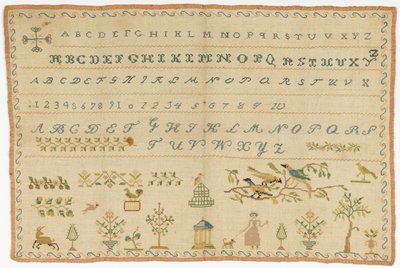 A B C D E F G H I K L M N O P Q R S T U V X Y Z
A B C D E F G H I K L M N O P Q R S T U V X Y
Z
A B C D E F G H I K L M N O P Q R S T U V X
1 2 3 4 5 6 7 8 9 1 0 1 2 3 4 5 6 7 8 9 10
A B C D E F G H I K L M N O P Q R S
T U V W X Y Z